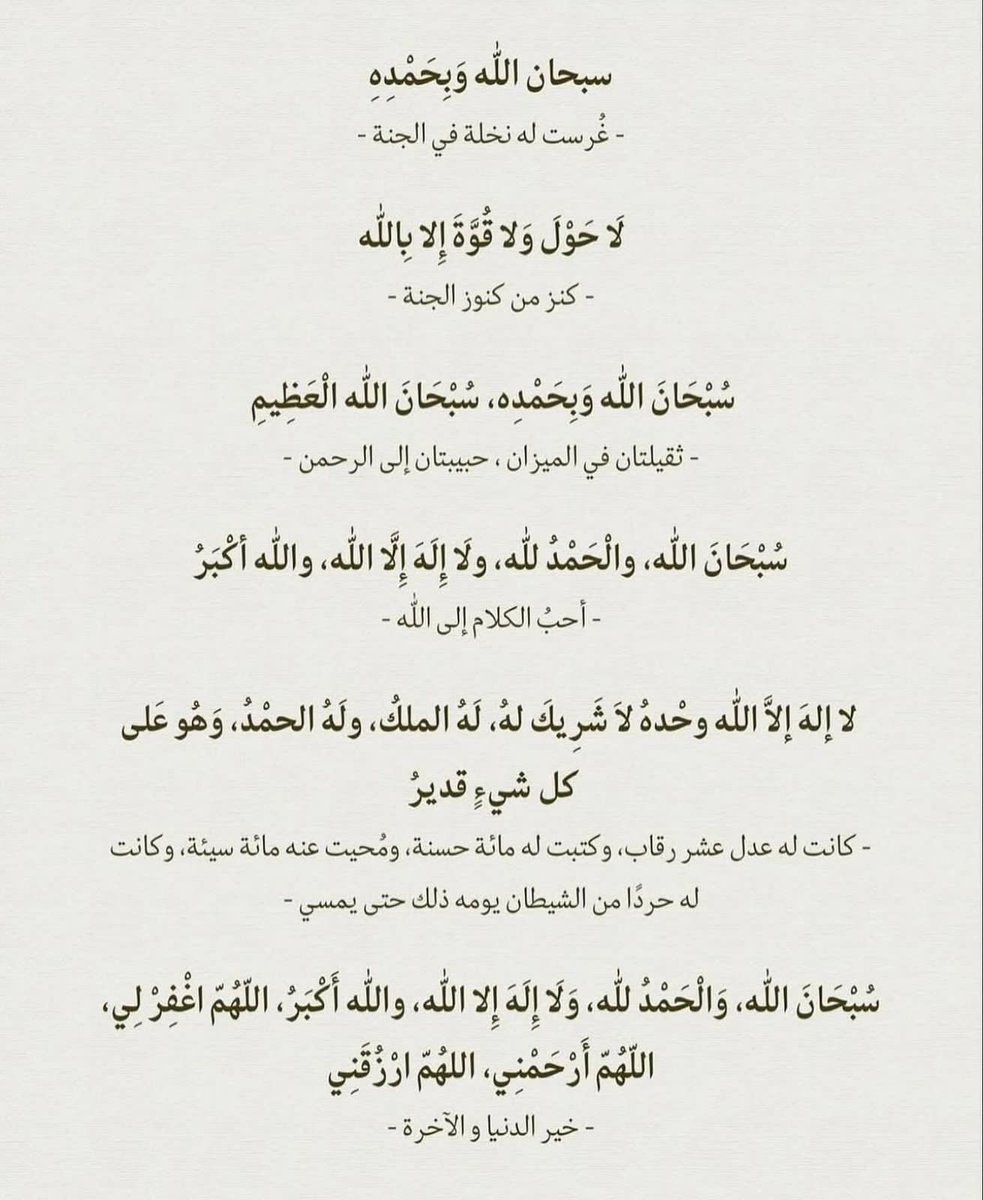 سبحان الله وَبِحَمْدِهِ
- غُرست له نخلة في الجنة -
لَا حَوْلَ وَلا قُوَّةَ إِلا بِالله
- كنز من كنوز الجنة -
سُبْحَانَ الله وَبِحَمْدِه، سُبْحَانَ الله الْعَظِيمِ
- ثقيلتان في الميزان ، حبيبتان إلى الرحمن -
سُبْحَانَ الله، والْحَمْدُ لله، ولَا إِلَهَ إِلَّا الله، والله أكْبَرُ
- أحبُ الكلام إلى الله -
لا إلهَ إلاَّ الله وحْدهُ لاَ شَرِيكَ لهُ، لَهُ الملكُ، ولَهُ الحمْدُ، وَهُو عَلى
كل شيءٍ قديرُ
- كانت له عدل عشر رقاب، وكتبت له مائة حسنة، ومُحيت عنه مائة سيئة، وكانت
له حردًا من الشيطان يومه ذلك حتى يمسي -
سُبْحَانَ الله، وَالْحَمْدُ لله، وَلَا إِلَهَ إِلا الله، والله أَكْبَرُ، اللّهُمّ اغْفِرْ لِي،
اللّهُمّ أَرْحَمْنِي، اللهُمّ ارْزُقَنِي
- خير الدنيا و الآخرة -